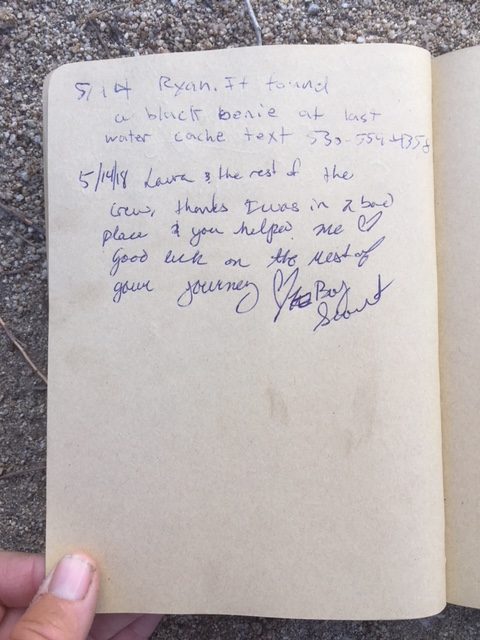 5/14 Ryan. It found
a black benie at last
water cache text 530-554-4358
5/14/18 Laura & the rest of the
crew, thanks I was in a bad
place & you helped me ♡
Good luck on the rest of
your journey ♡ Boy
Scout